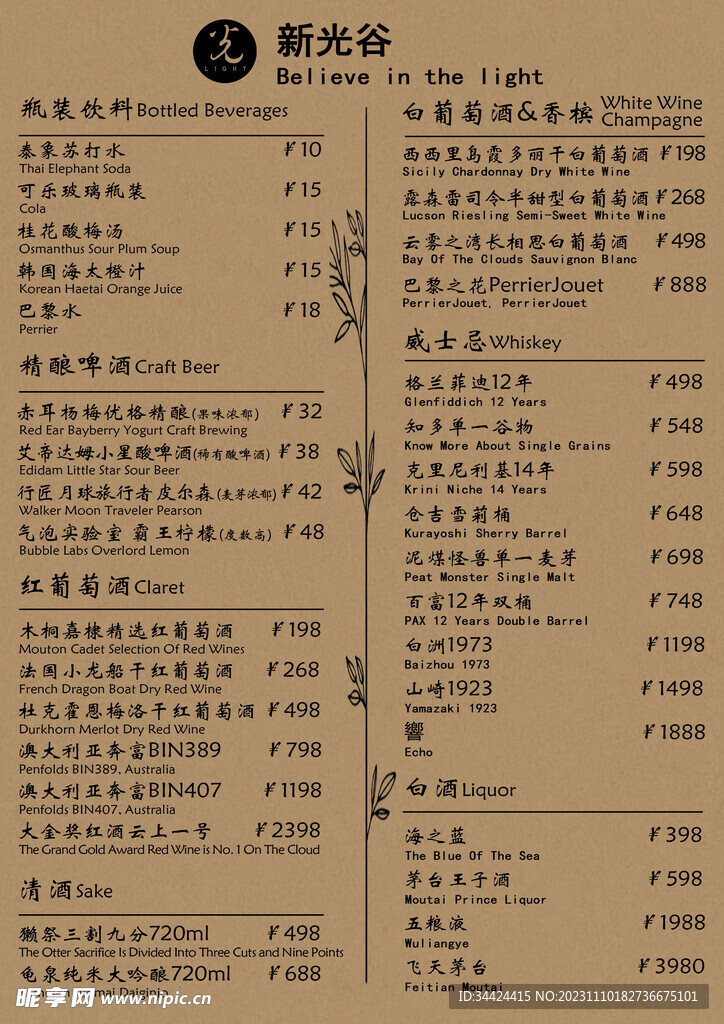 光
LIGHT
新光谷
Believe in the light
瓶装饮料Bottled Beverages
泰象苏打水 ¥10
Thai Elephant Soda
可乐玻璃瓶装 ¥15
Cola
桂花酸梅汤 ¥15
Osmanthus Sour Plum Soup
韩国海太橙汁 ¥15
Korean Haetai Orange Juice
巴黎水 ¥18
Perrier
精酿啤酒Craft Beer
赤耳杨梅优格精酿(果味浓郁) ¥32
Red Ear Bayberry Yogurt Craft Brewing
艾帝达姆小星酸啤酒(稀有酸啤酒) ¥38
Edidam Little Star Sour Beer
行匠月球旅行者皮尔森(麦芽浓郁) ¥42
Walker Moon Traveler Pearson
气泡实验室 霸王柠檬(度数高) ¥48
Bubble Labs Overlord Lemon
红葡萄酒Claret
木桐嘉棣精选红葡萄酒 ¥198
Mouton Cadet Selection Of Red Wines
法国小龙船干红葡萄酒 ¥268
French Dragon Boat Dry Red Wine
杜克霍恩梅洛干红葡萄酒 ¥498
Durkhorn Merlot Dry Red Wine
澳大利亚奔富BIN389 ¥798
Penfolds BIN389, Australia
澳大利亚奔富BIN407 ¥1198
Penfolds BIN407, Australia
大金奖红酒云上一号 ¥2398
The Grand Gold Award Red Wine is No. 1 On The Cloud
清酒Sake
獭祭三割九分720ml ¥498
The Otter Sacrifice Is Divided Into Three Cuts and Nine Points
龟泉纯米大吟酿720ml ¥688
Daiginjo
白葡萄酒&香槟 White Wine
Champagne
西西里乌霞多丽干白葡萄酒 ¥198
Sicily Chardonnay Dry White Wine
露森雷司令半甜型白葡萄酒 ¥268
Lucson Riesling Semi-Sweet White Wine
云雾之湾长相思白葡萄酒 ¥498
Bay Of The Clouds Sauvignon Blanc
巴黎之花PerrierJouet ¥888
PerrierJouet, PerrierJouet
威士忌Whiskey
格兰菲迪12年 ¥498
Glenfiddich 12 Years
知多单一谷物 ¥548
Know More About Single Grains
克里尼利基14年 ¥598
Krini Niche 14 Years
仓吉雪莉桶 ¥648
Kurayoshi Sherry Barrel
泥煤怪兽单一麦芽 ¥698
Peat Monster Single Malt
百富12年双桶 ¥748
PAX 12 Years Double Barrel
白洲1973 ¥1198
Baizhou 1973
山崎1923 ¥1498
Yamazaki 1923
響 ¥1888
Echo
白酒Liquor
海之蓝 ¥398
The Blue Of The Sea
茅台王子酒 ¥598
Moutai Prince Liquor
五粮液 ¥1988
Wuliangye
飞天茅台 ¥3980
Feitian Moutai
昵享网 www.nipic.cn
ID:34424415 NO:20231110182736675101